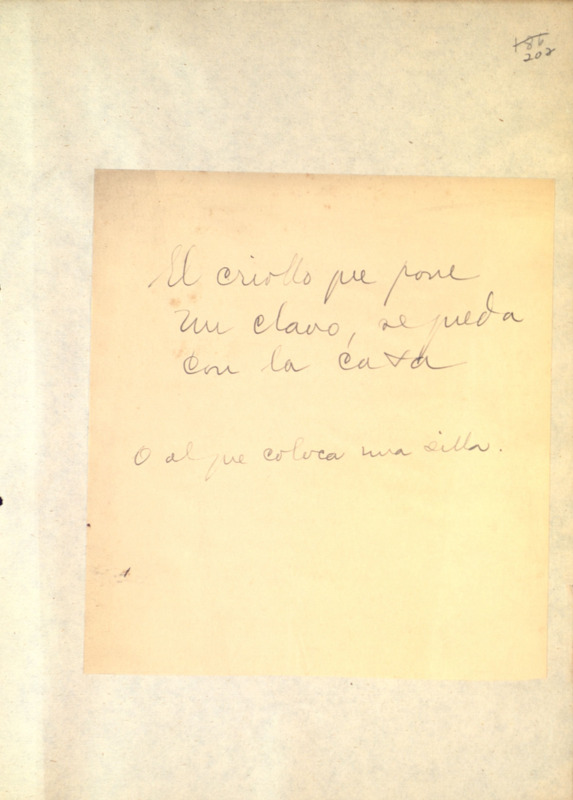 202
El criollo que pone
un clavo, se queda
con la casa
O el que coloca una silla.